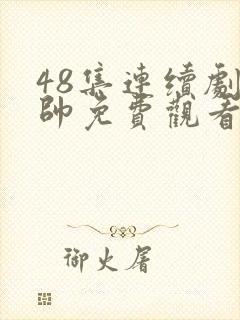 48集連續劇
帥免費觀看
御火屠